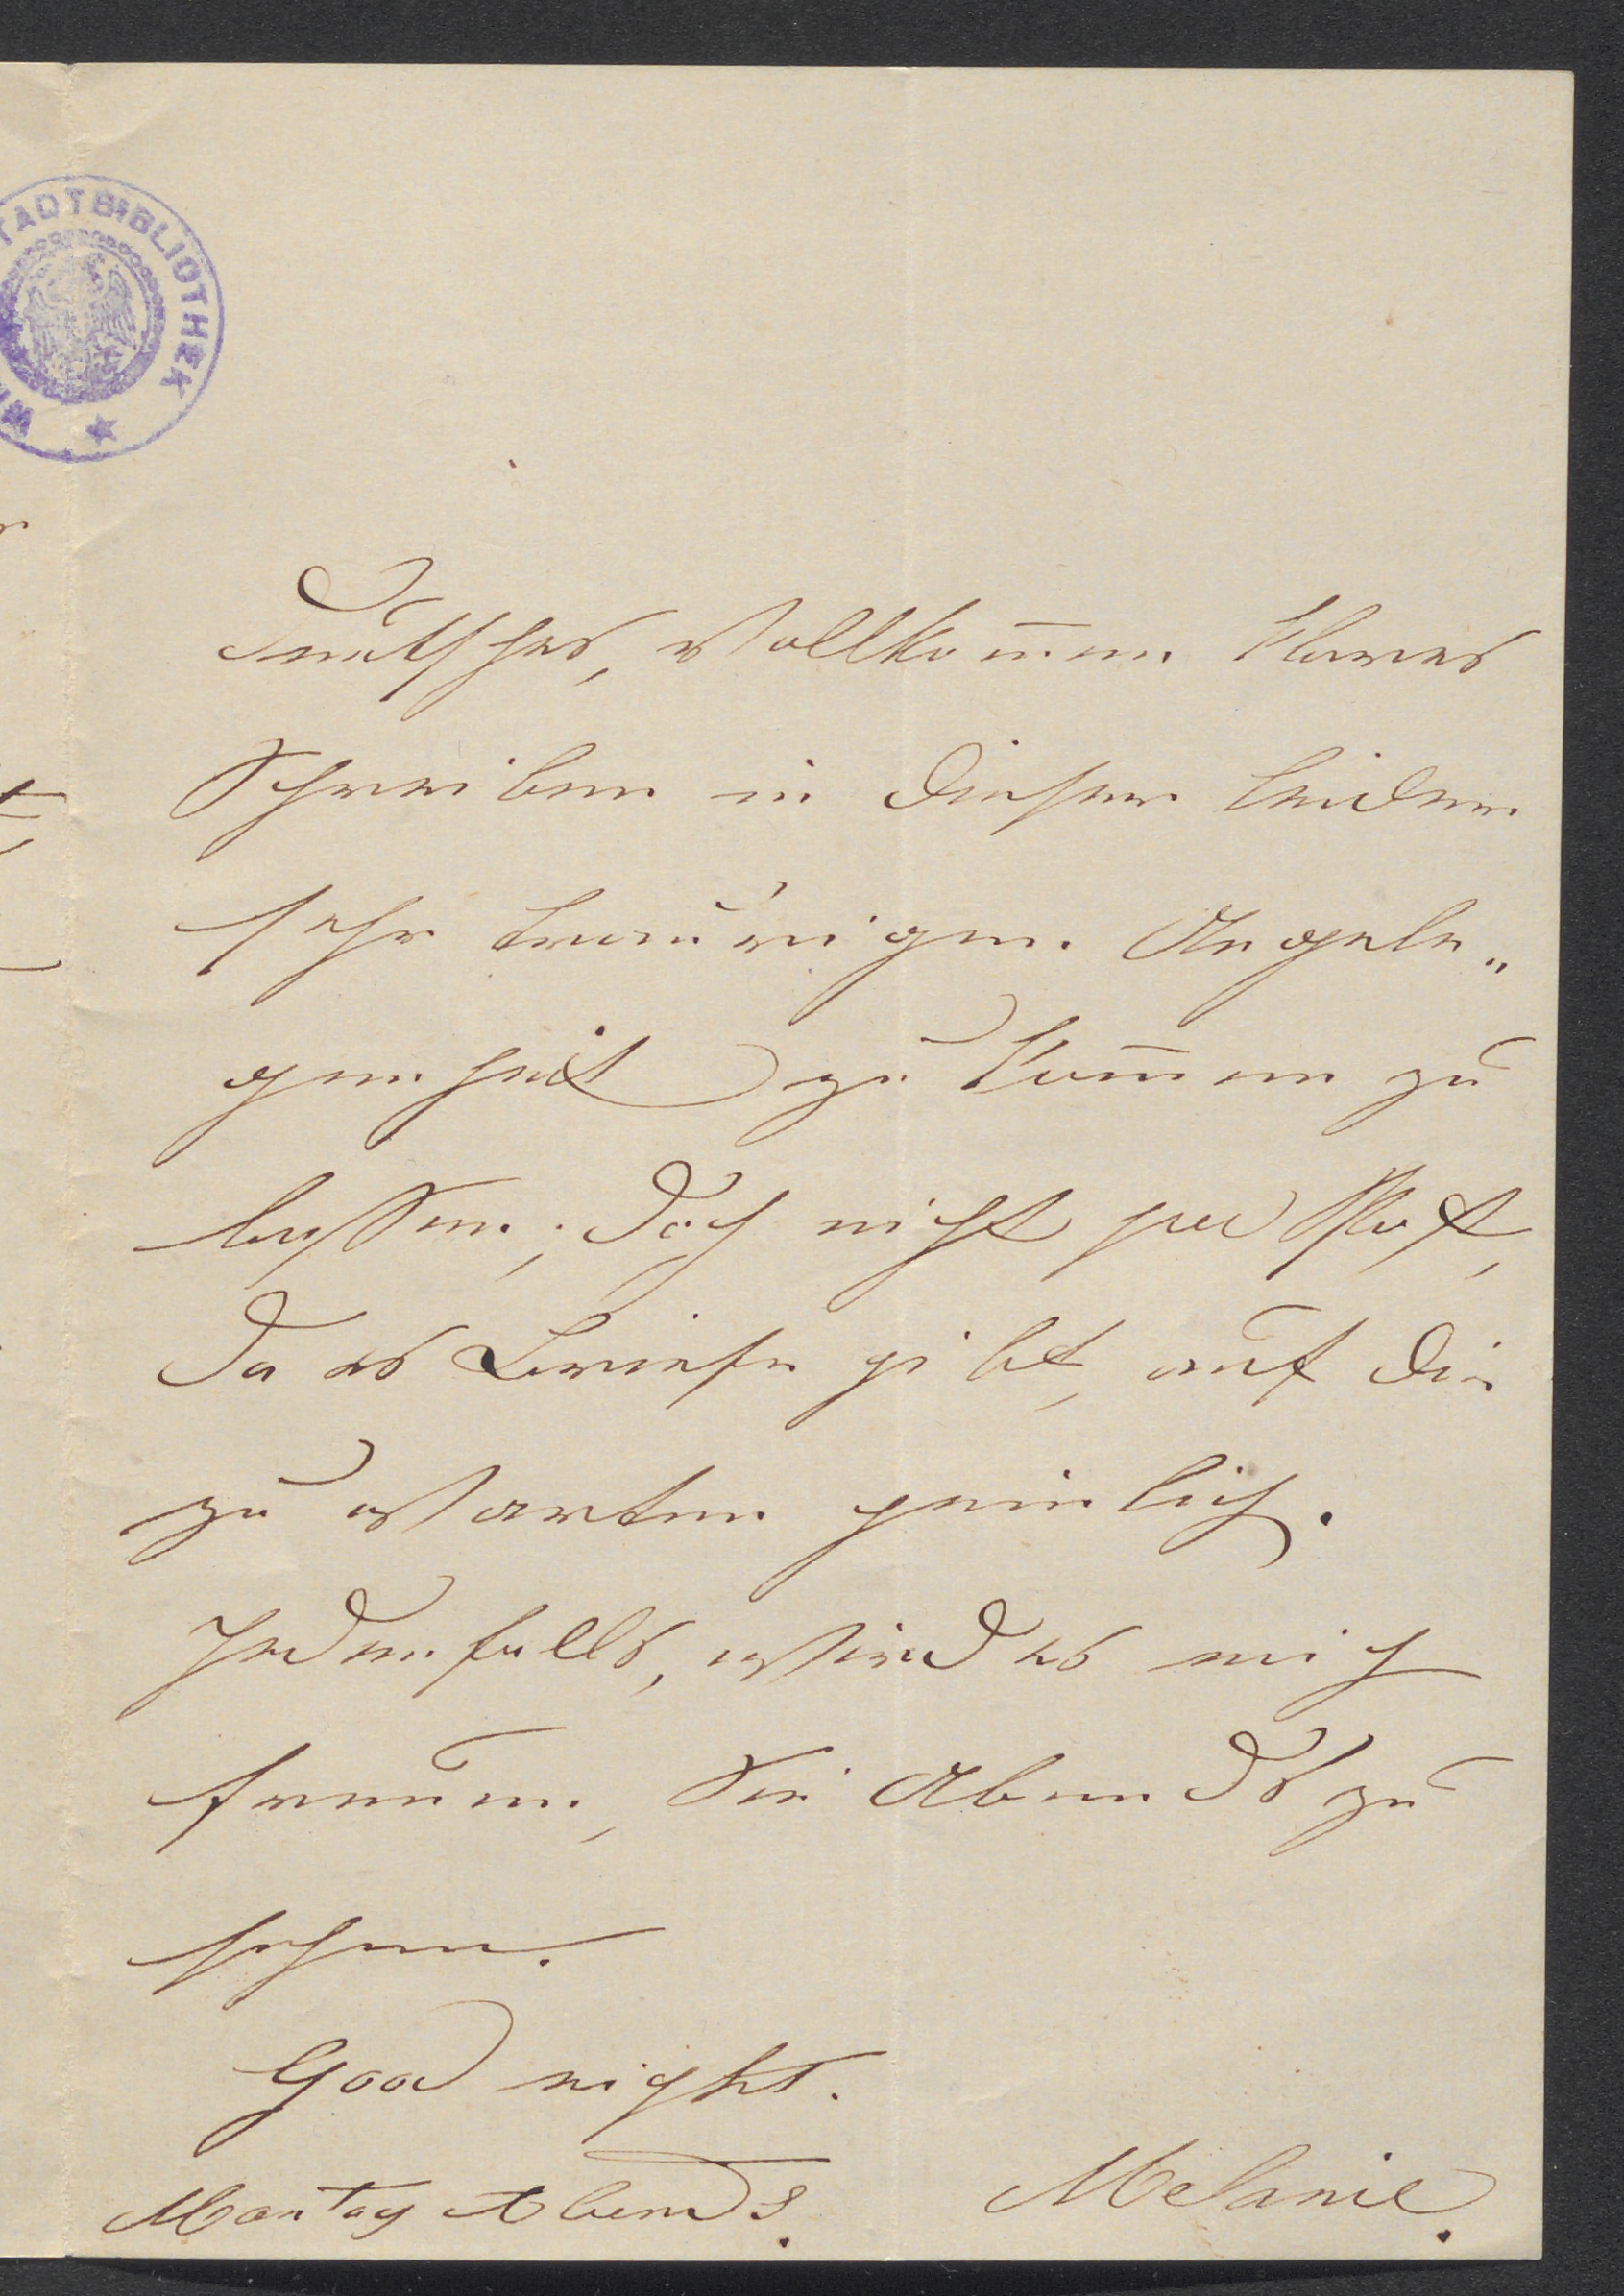 STADTBIBLIOTHEK
Deutsches, vollkom̅en klares
Schreiben in dieser leider
sehr traurigen Angele„
genheit zu kom̅en zu
lassen; doch nicht per Post,
da es Briefe gibt, auf die
zu warten peinlich.
Jedenfalls, wird es mich
freuen, Sie Abends zu
sehen.
Good night.
Montag Abends.
Melanie.